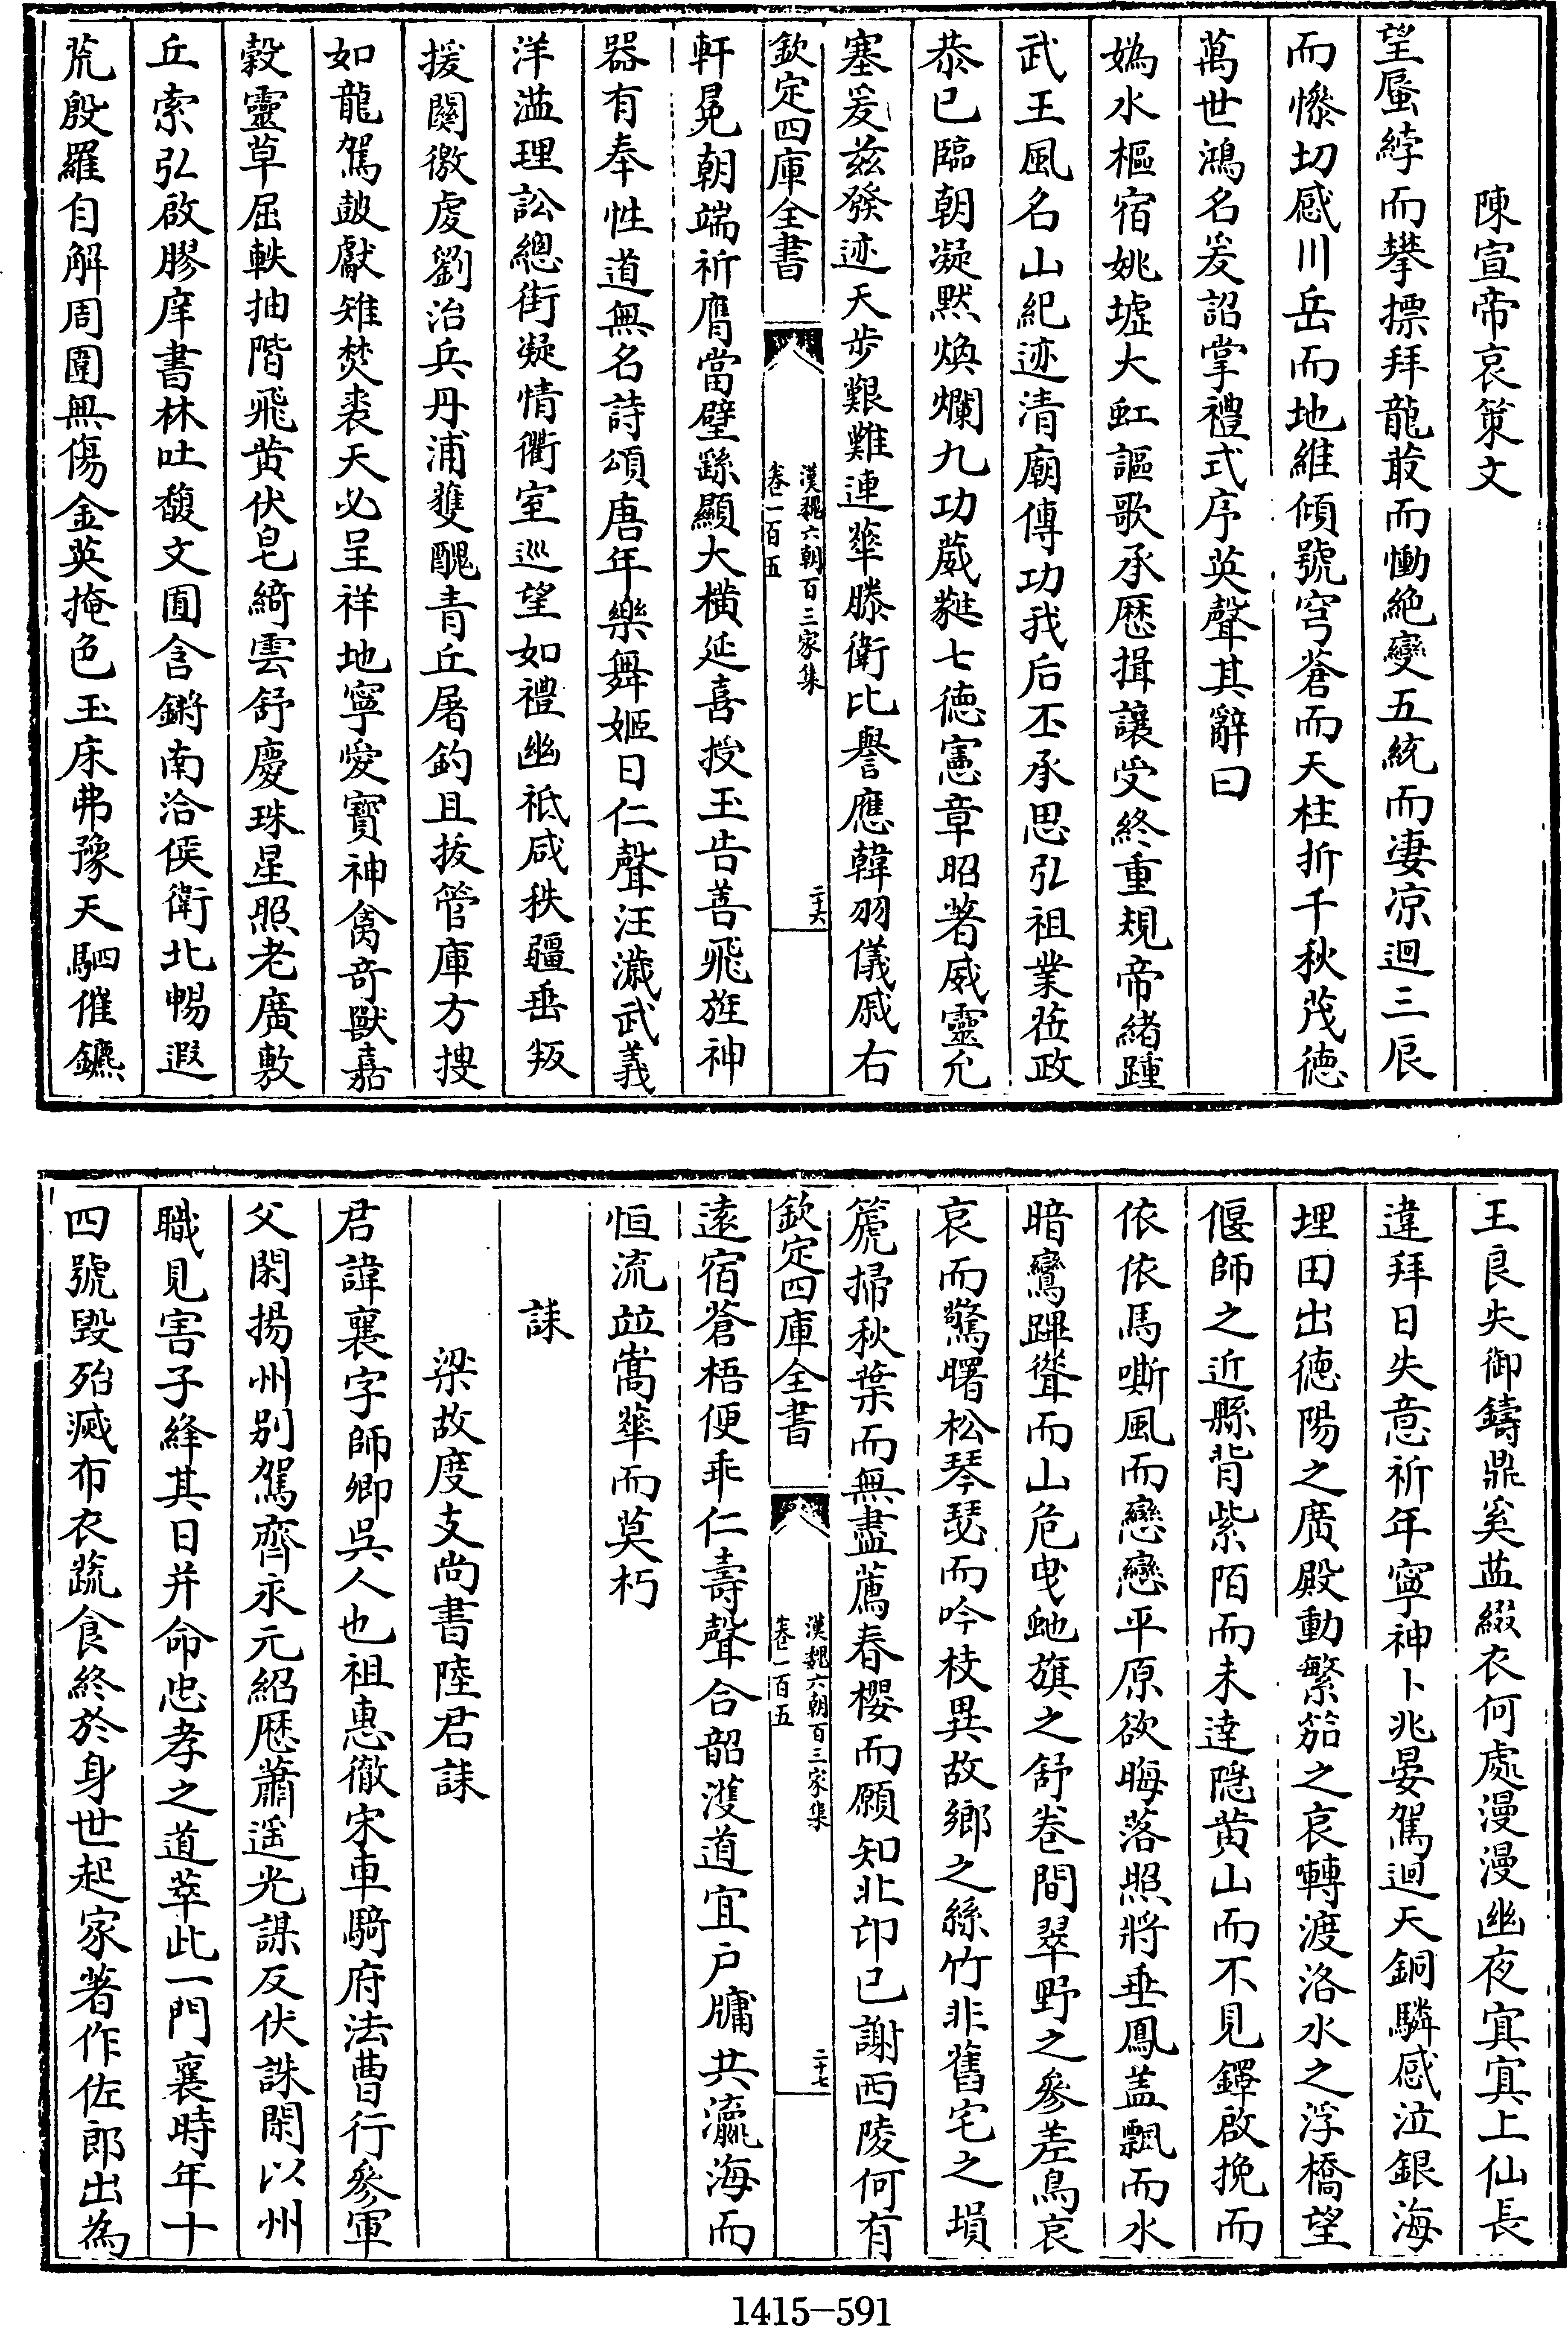 陳宣帝哀策文
望蜃綍而攀摽拜龍菆而慟絶變五統而淒凉迴三辰
而慘切感川岳而地維傾號穹蒼而天柱折千秋茂德
萬世鴻名爰詔掌禮式序英聲其辭曰
媯水樞宿姚墟大虹謳歌承歷揖讓受終重規帝緒踵
武王風名山紀迹清廟傳功我后丕承思弘祖業莅政
恭已臨朝凝默煥爛九功葳蕤七德憲章昭著威靈允
塞爰茲發迹天步艱難連華滕衛比譽應韓羽儀戚右
欽定四庫全書
漢魏六朝百三家集
卷一百五
二十六
軒冕朝端祈膺當璧繇顯大橫延喜授玉告善飛旌神
器有奉性道無名詩頌唐年樂舞姬日仁聲汪濊武義
洋溢理訟總街凝情衢室巡望如禮幽祇咸秩疆垂叛
援闕徼虔劉治兵丹浦雙醜青丘屠釣且拔管庫方搜
如龍駕鼓獻雉焚裘天必呈祥地寧愛寶神禽竒獸嘉
穀靈草屈軼抽階飛黄伏皂綺雲舒慶珠星照老廣敷
丘索弘啟膠庠書林吐馥文囿含鏘南洽侯衛北暢遐
荒殷羅自解周圍無傷金英掩色玉床弗豫天駟催鑣
王良失御鑄鼎奚益綴衣何處漫漫幽夜寘寘上仙長
違拜日失意祈年寧神卜兆晏駕迴天銅驎感泣銀海
埋田出德陽之廣殿動繁笳之哀囀渡洛水之浮橋望
偃師之近縣背紫陌而未達隱黄山而不見鐸啟挽而
依依馬嘶風而戀戀平原欲晦落照將垂鳳盖飄而水
暗鸞蹕聳而山危曳虵旗之舒卷間翠野之參差鳥哀
哀而驚曙松琴瑟而吟枝異故鄉之絲竹非舊宅之塤
篪掃秋葉而無盡薦春櫻而願知北卬已謝西陵何有
欽定四庫全書
漢魏六朝百三家集
卷一百五
二十七
遠宿蒼梧便乖仁壽聲合韶濩道宜户牖共瀛海而
恒流竝嵩華而莫朽
誄
梁故度支尚書陸君誄
君諱襄字師卿吳人也祖惠徹宋車騎府法曹行參軍
父閑揚州别駕齊永元紹歷蕭遥光謀反伏誅閑以州
職見害子絳其日并命忠孝之道萃此一門襄時年十
四號毁殆滅布衣蔬食終於身世起家著作佐郎出為
1415-591